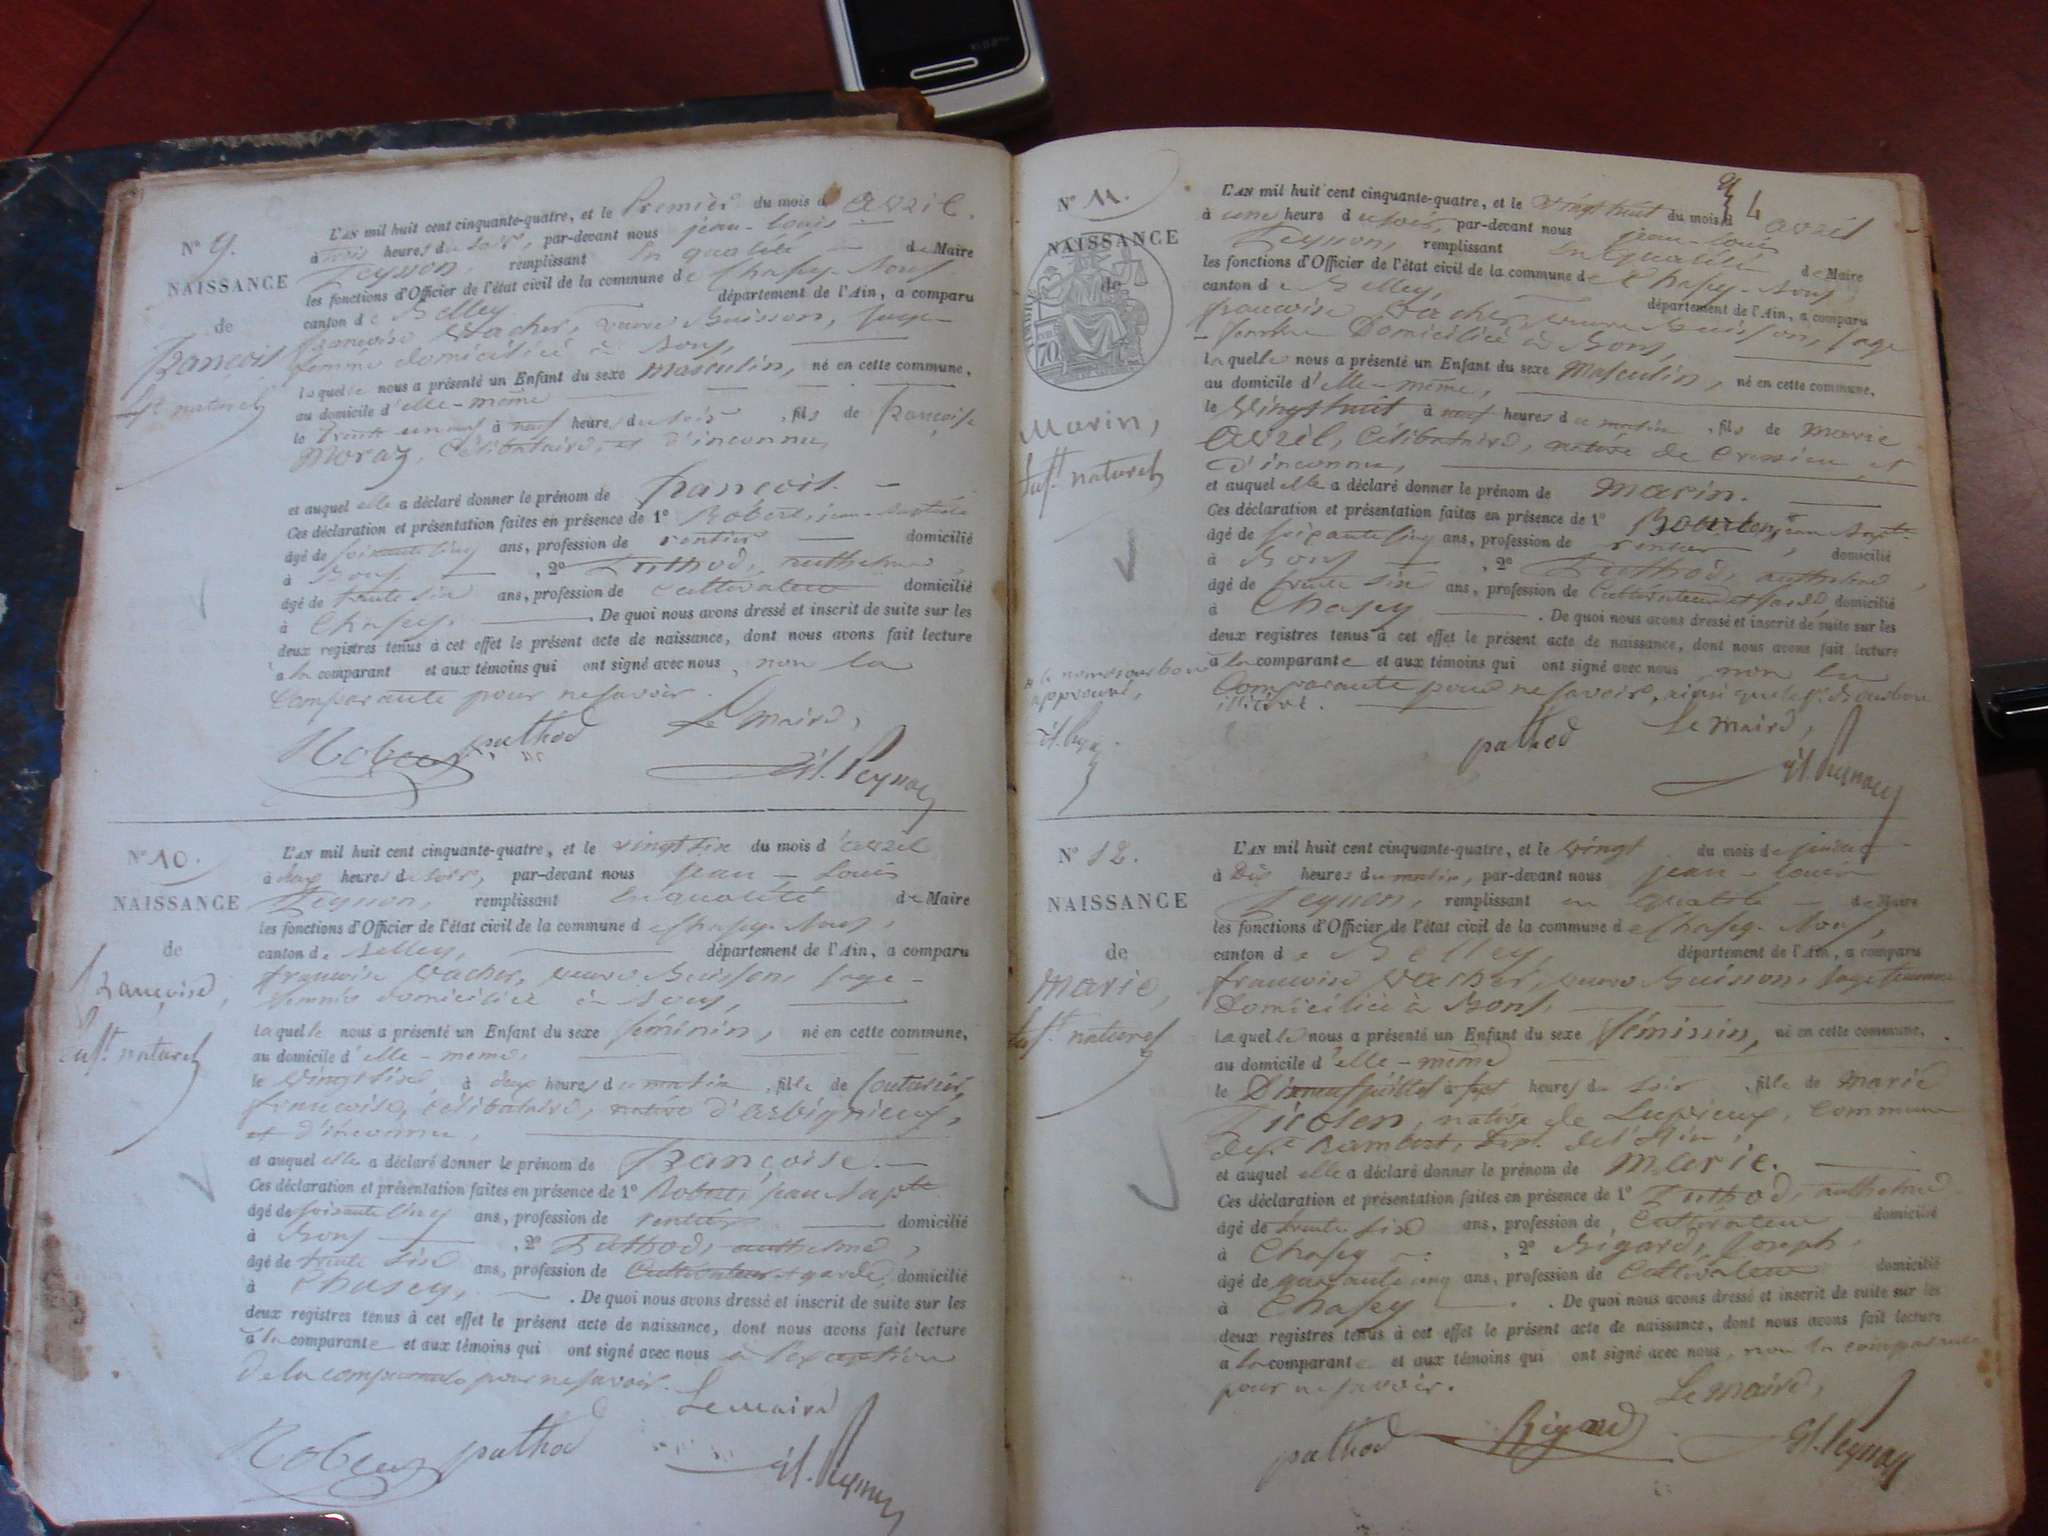 N° 9.
NAISSANCE
de
François
Enft naturel
L'AN mil huit cent cinquante-quatre, et le Premier du mois d'avril.
à trois heures du soir, par-devant nous jean-Louis
Peysson, remplissant en qualité de Maire
les fonctions d'Officier de l'état civil de la commune de Chasey-Bons
canton de Belley. département de l'Ain, a comparu
francoise Vacher, veuve Buisson, sage-
femme domiciliée à Bons,
laquelle nous a présenté un Enfant du sexe masculin, né en cette commune,
au domicile d'elle-même
le trente-un à neuf heures du soir, fils de françoise
Moraz, Célibataire, et d'inconnu,
et auquel elle a déclaré donner le prénom de françois.
Ces déclaration et présentation faites en présence de 1° Robert, jean-
âgé de soixante cinq ans, profession de rentier domicilié
à Bons, 2° Puthod, anthelme,
âgé de trente six ans, profession de Cultivateur domicilié
à Chasey. De quoi nous avons dressé et inscrit de suite sur les
deux registres tenus à cet effet le présent acte de naissance, dont nous avons fait lecture
à la comparant et aux témoins qui ont signé avec nous, non la
Comparante pour ne savoir.
puthod Le Maire,
N° 10.
NAISSANCE
de
francoise,
Enft naturel
L'AN mil huit cent cinquante-quatre, et le vingt six du mois d'avril
à deux heures du soir, par-devant nous jean-Louis
Peysson, remplissant en qualité de Maire
les fonctions d'Officier de l'état civil de la commune de Chasey-Bons,
canton de Belley, département de l'Ain, a comparu
francoise Vacher, veuve Buisson, sage-
femme domiciliée à Bons,
laquelle nous a présenté un Enfant du sexe féminin, né en cette commune,
au domicile d'elle-meme,
le vingt six à deux heures du matin, fille de Couturier,
francoise, célibataire, native d'arbignieux,
et d'inconnu,
et auquel elle a déclaré donner le prénom de francoise.
Ces déclaration et présentation faites en présence de 1° Robert, jean Bapte
âgé de soixante cinq ans, profession de rentier domicilié
à Bons, 2° Puthod, anthelme,
âgé de trente six ans, profession de Cultivateur et garde, domicilié
à Chasey, De quoi nous avons dressé et inscrit de suite sur les
deux registres tenus à cet effet le présent acte de naissance, dont nous avons fait lecture
à la comparante et aux témoins qui ont signé avec nous à l'exception
de la comparante pour ne savoir.
Le maire
puthod
N° 11.
NAISSANCE
de
Marin,
Enft naturel
L'AN mil huit cent cinquante-quatre, et le vingt huit du mois d'avril
à une heure du soir, par-devant nous jean-Louis
Peysson, remplissant en qualité de Maire
les fonctions d'Officier de l'état civil de la commune de Chasey-Bons,
canton de Belley, département de l'Ain, a comparu
francoise Vacher veuve Buisson, sage
-femme Domiciliée à Bons,
laquelle nous a présenté un Enfant du sexe Masculin, né en cette commune,
au domicile d'elle-même,
le vingt huit à neuf heures du matin, fils de Marie
avril, Célibataire, native de Cressieu et
d'inconnu,
et auquel elle a déclaré donner le prénom de Marin.
Ces déclaration et présentation faites en présence de 1° Bourbon, jean Bapt.
âgé de soixante cinq ans, profession de rentier, domicilié
à Bons, 2° Puthod, anthelme,
âgé de trente six ans, profession de Cultivateur et garde, domicilié
à Chasey. De quoi nous avons dressé et inscrit de suite sur les
deux registres tenus à cet effet le présent acte de naissance, dont nous avons fait lecture
à la comparante et aux témoins qui ont signé avec nous non la
Comparante pour ne savoir, ainsi que le Sr. Bourbon
illitéré.
le nom Bourbon
approuvé,
puthod Le Maire,
N° 12.
NAISSANCE
de
Marie,
Enft naturel
L'AN mil huit cent cinquante-quatre, et le vingt du mois de juillet
à Dix heures du matin, par-devant nous jean-Louis
Peysson, remplissant en qualité de Maire
les fonctions d'Officier de l'état civil de la commune de Chasey-Bons,
canton de Belley, département de l'Ain, a comparu
francoise Vacher, veuve Buisson, sage femme
Domiciliée à Bons,
laquelle nous a présenté un Enfant du sexe féminin, né en cette commune,
au domicile d'elle-même
le Dix neuf juillet à sept heures du soir, fille de Marie
native de Lupieux, Commune
de St Rambert, Dép. de l'Ain,
et auquel elle a déclaré donner le prénom de Marie.
Ces déclaration et présentation faites en présence de 1° Puthod, anthelme
âgé de trente six ans, profession de Cultivateur domicilié
à Chasey, 2° Rigard, Joseph,
âgé de quarante cinq ans, profession de Cultivateur domicilié
à Chasey. De quoi nous avons dressé et inscrit de suite sur les
deux registres tenus à cet effet le présent acte de naissance, dont nous avons fait lecture
à la comparante et aux témoins qui ont signé avec nous, non la comparante
pour ne savoir.
Le Maire,
puthod Rigard